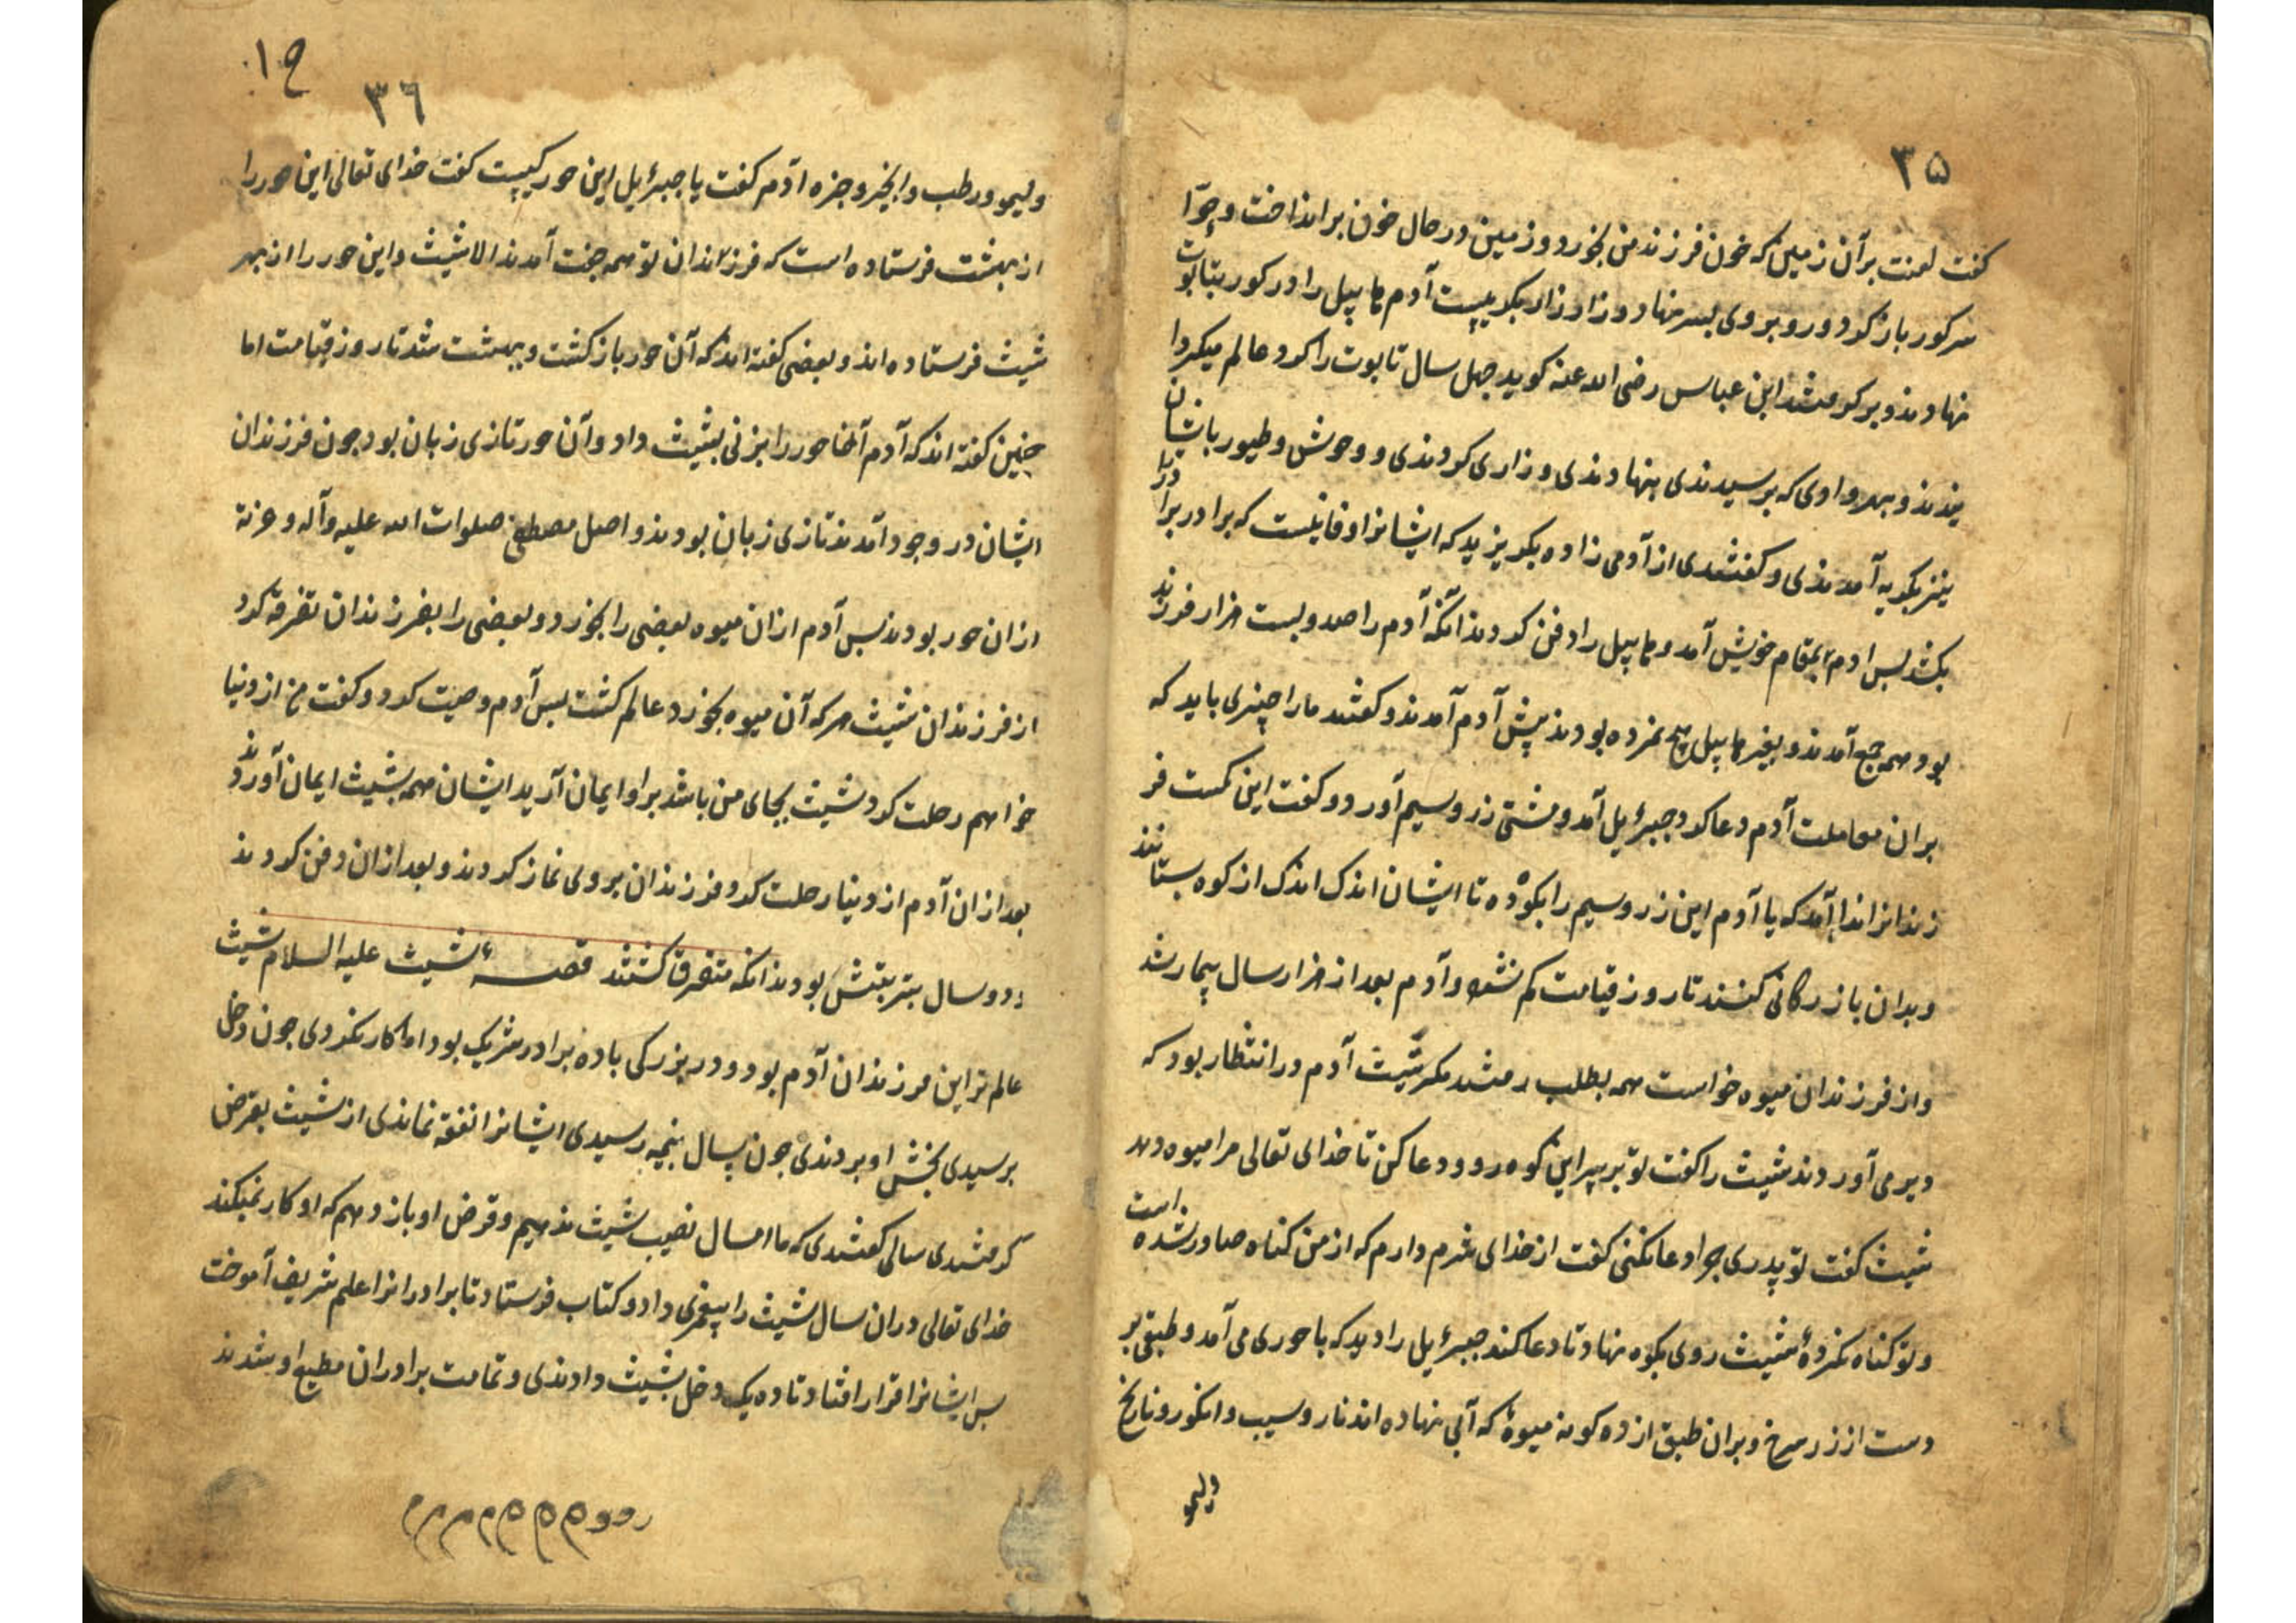 ۳۵
کفت لعنت بر آن زمین که خون فرزند من بخورد و زمین در حال خون بر انداخت و حوّا
سر کور باز کرد و رو بر وی بسر نهاد و زار زار بکریست آدم هابیل را در کور بتابوت
نهادند و بر کرفتند ابن عباس رضی الله عنه کوید چهل سال تابوت را کرد عالم میکردا
نیدند و بهر وادی که برسیدندی بنهادندی و زاری کردندی و وحوش و طیور باشان
نیز بکریه آمدندی و کفتندی از آدمی زاده بکریزید که ایشانرا وفا نیست که برادر برادر را
بکشد بس ادم بمقام خویش آمد و هابیل را دفن کردند انکه آدم را صد و بیست هزار فرزند
بود همه جمع آمدند و بغیر هابیل هیچ نمرده بودند پیش آدم آمدند و کفتند ما را چیزی باید که
بران معاملت آدم دعا کرد جبرئیل آمد و مشتی زر و سیم آورد و کفت این کمست فر
زندانرا ندا آمد که یا آدم این زر و سیم را بکوه ده تا ایشان اندک اندک از کوه بستانند
و بدان بازرکانی کنند تا روز قیامت کم نشود و آدم بعد از هزار سال بیمار شد
و از فرزندان میوه خواست همه بطلب رفتند مکر شیث آدم در انتظار بود که
دیر می آوردند شیث را کفت تو بر سر این کوه رو و دعا کن تا خدای تعالی مرا میوه دهد
شیث کفت تو پدری چرا دعا نکنی کفت از خدای شرم دارم که از من کناه صادر شده است
و تو کناه نکردهٔ شیث روی بکوه نهاد تا دعا کند جبرئیل را دید که با حوری می آمد و طبقی بر
دست از زر سرخ و بران طبق از ده کونه میوهٔ که آبی نهاده اند نار و سیب و انکور و نارنج
ولیمو
۳٦
ولیمو و رطب و انجیر و جزه آدم کفت یا جبرئیل این حور کیست کفت خدای تعالی این حور را
از بهشت فرستاده است که فرزندان تو همه جفت آمدند الا شیث و این حور را از بهر
شیث فرستاده اند و بعضی کفته اند که آن حور باز کشت و ببهشت شد تا روز قیامت اما
چنین کفته اند که آدم آنجا حور را بزنی بشیث داد و آن حور تازی زبان بود چون فرزندان
ایشان در وجود آمدند تازی زبان بودند و اصل مصطفی صلوات الله علیه و آله و عزته
ازان حور بودند بس آدم ازان میوه بعضی را بخورد و بعضی را بفرزندان تفرقه کرد
از فرزندان شیث هر که آن میوه بخورد عالم کشت بس آدم وصیت کرد و کفت من از دنیا
خواهم رحلت کرد شیث بجای من باشد بر او ایمان آرید ایشان همه بشیث ایمان آوردند
بعد ازان آدم از دنیا رحلت کرد و فرزندان بر وی نماز کردند و بعد ازان دفن کردند
و دو سال بتربتش بودند انکه متفرق کشتند قصهٔ شیث علیه السلام شیث
عالم ترین فرزندان آدم بود و در بزرکی با ده برادر شریک بود اما کار نکردی چون دخل
برسیدی بخش او بردندی چون بسال پنجه رسیدی ایشانرا نفقه نماندی از شیث بقرض
کرفتندی سالی کفتندی که ما امسال نصیب شیث ندهیم و قرض او باز دهیم که او کار نمیکند
خدای تعالی دران سال شیث را پیغمبری داد و کتاب فرستاد تا برادرانرا علم شریف آموخت
بس ایشانرا قرار افتاد تا ده یک دخل بشیث دادندی و تمامت برادران مطیع او شدند